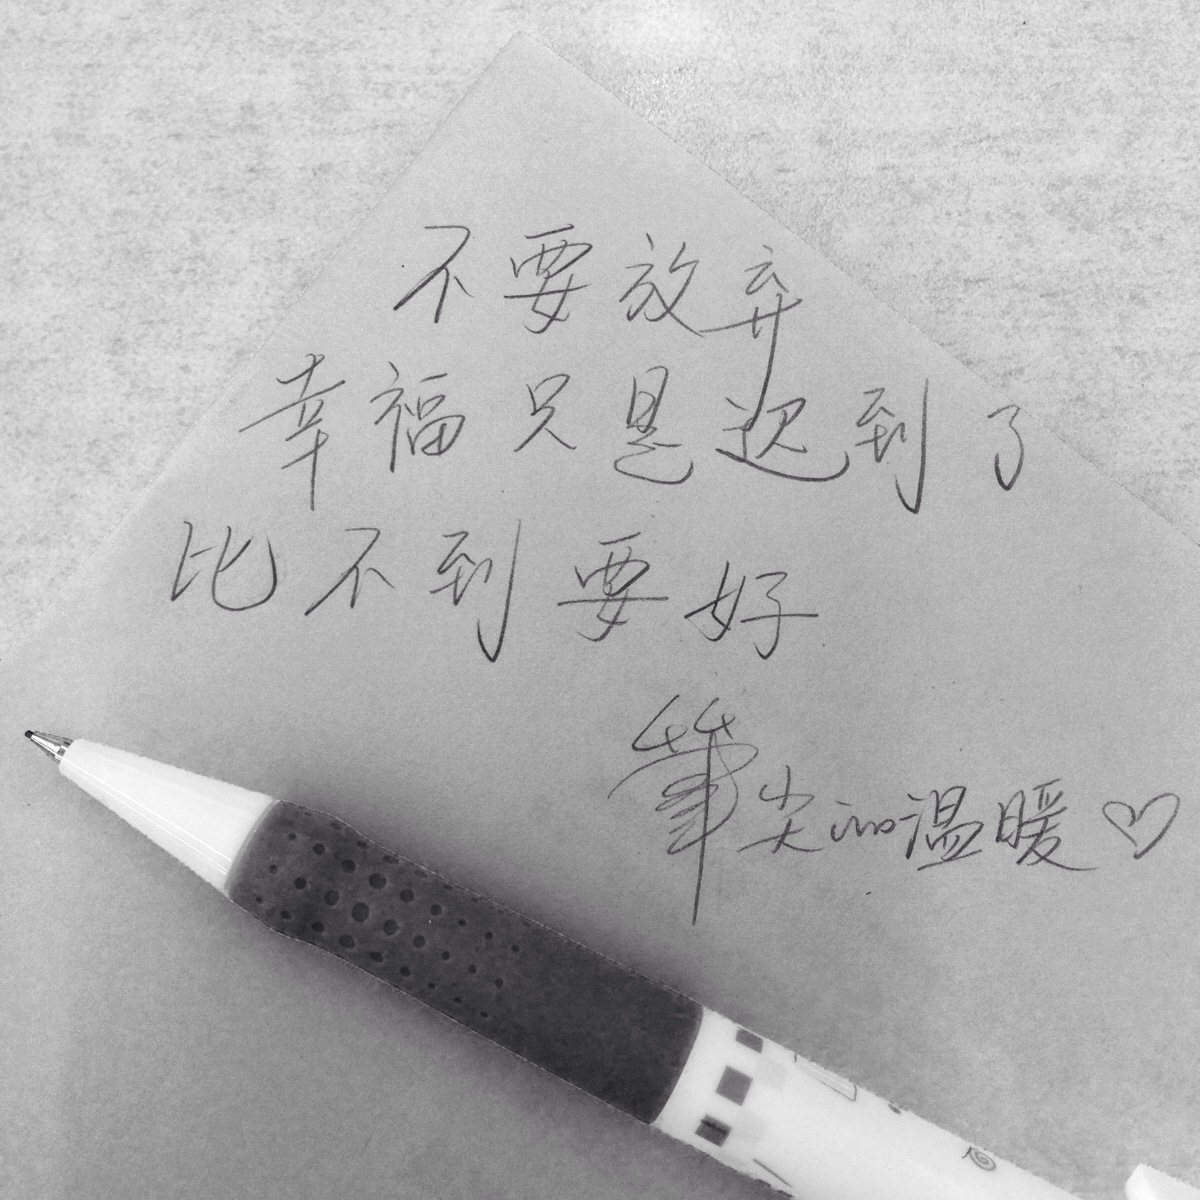 不要放弃
幸福只是迟到了
比不到要好
笔尖的温暖♡